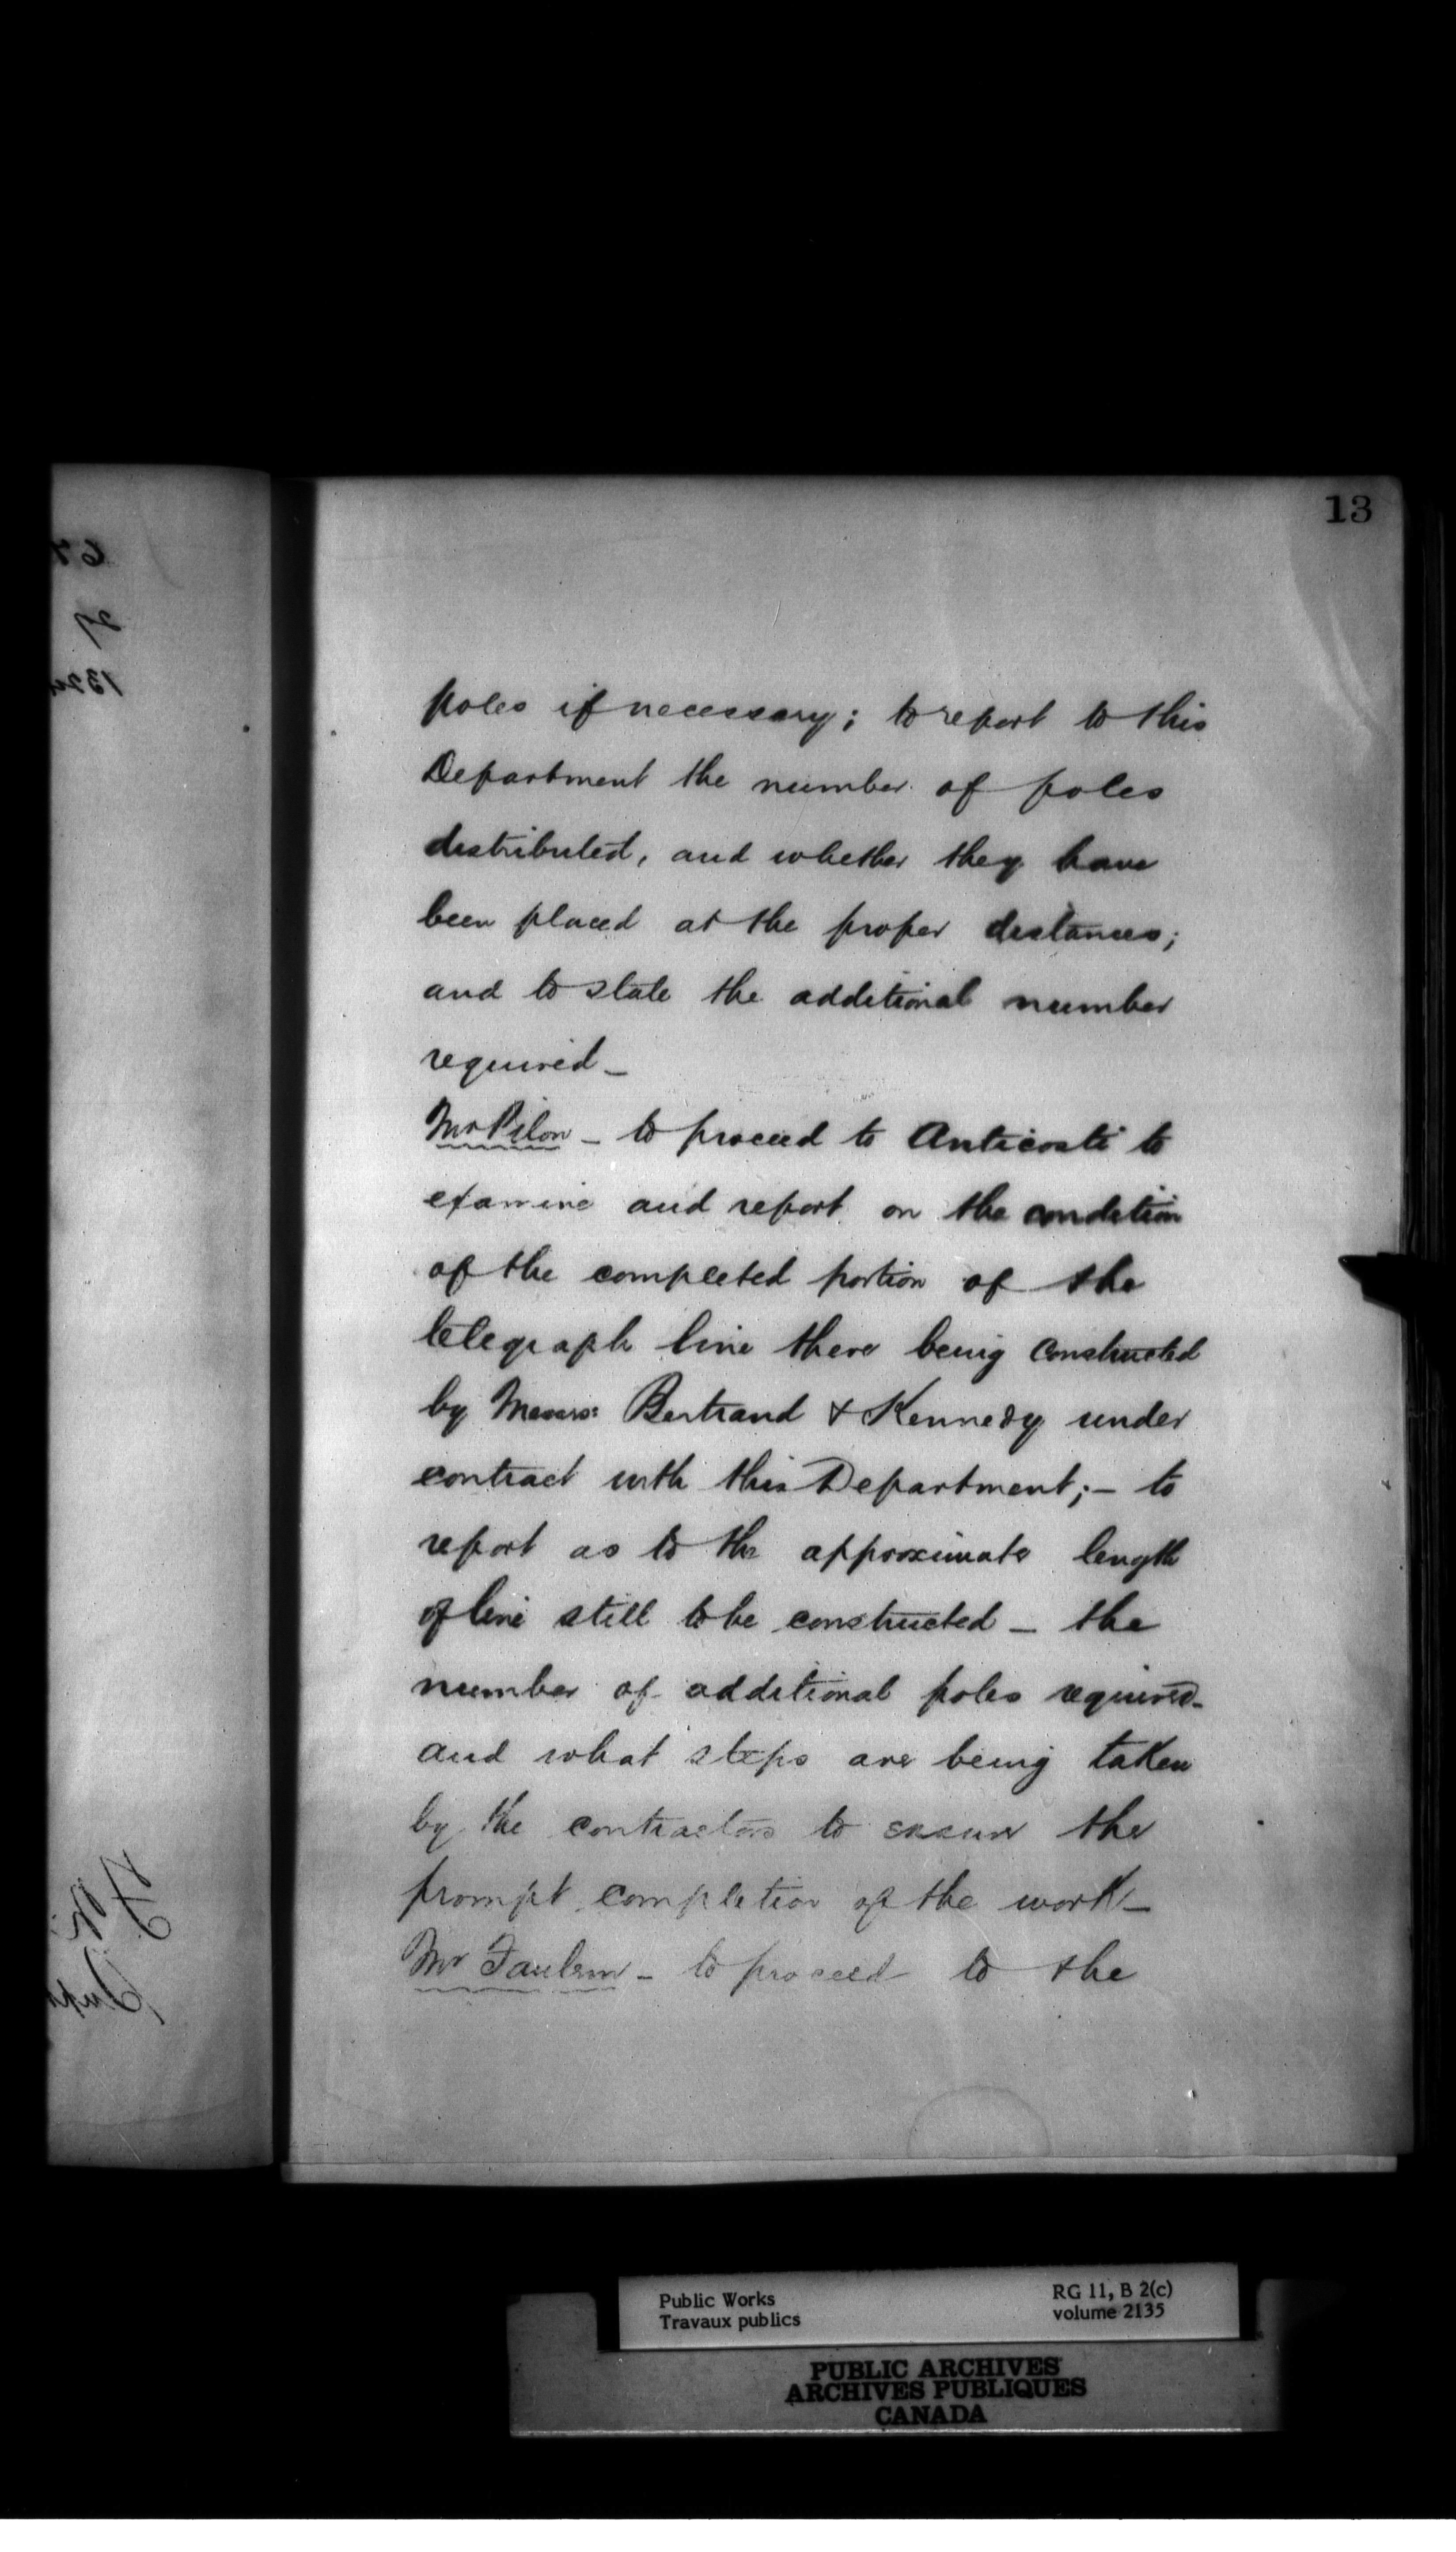 13
poles if necessary; to report to this
Department the number of poles
distributed, and whether they have
been placed at the proper distances;
and to state the additional number
required —
Mr Pilon — to proceed to Anticosti to
examine and report on the condition
of the completed portion of the
telegraph line there being constructed
by Messrs: Bertrand & Kennedy under
contract with this Department; — to
report as to the approximate length
of line still to be constructed — the
number of additional poles required —
and what steps are being taken
by the contractors to ensure the
prompt completion of the work —
Mr — to proceed to the
Public Works
Travaux publics
RG 11, B 2(c)
volume 2135
PUBLIC ARCHIVES
ARCHIVES PUBLIQUES
CANADA